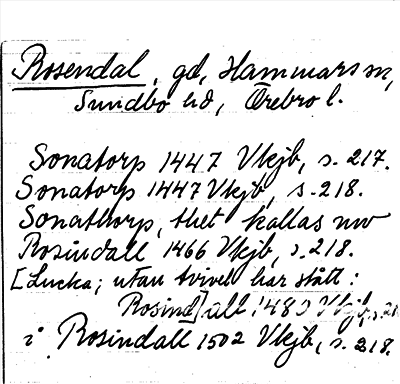 Rosendal, gd, Hammars sn,
Sundbo hd, Örebro l.
Sonatorp 1447 Vkjb, s. 217.
Sonatorp 1447 Vkjb, s. 218.
Sonathorp, thet kallas nw
Rosindall 1466 Vkjb, s. 218.
[Lucka; utan tvivel har stått:
Rosind]all 1480 Vkjb, s. 21
i Rosindall 1502 Vkjb, s. 218.